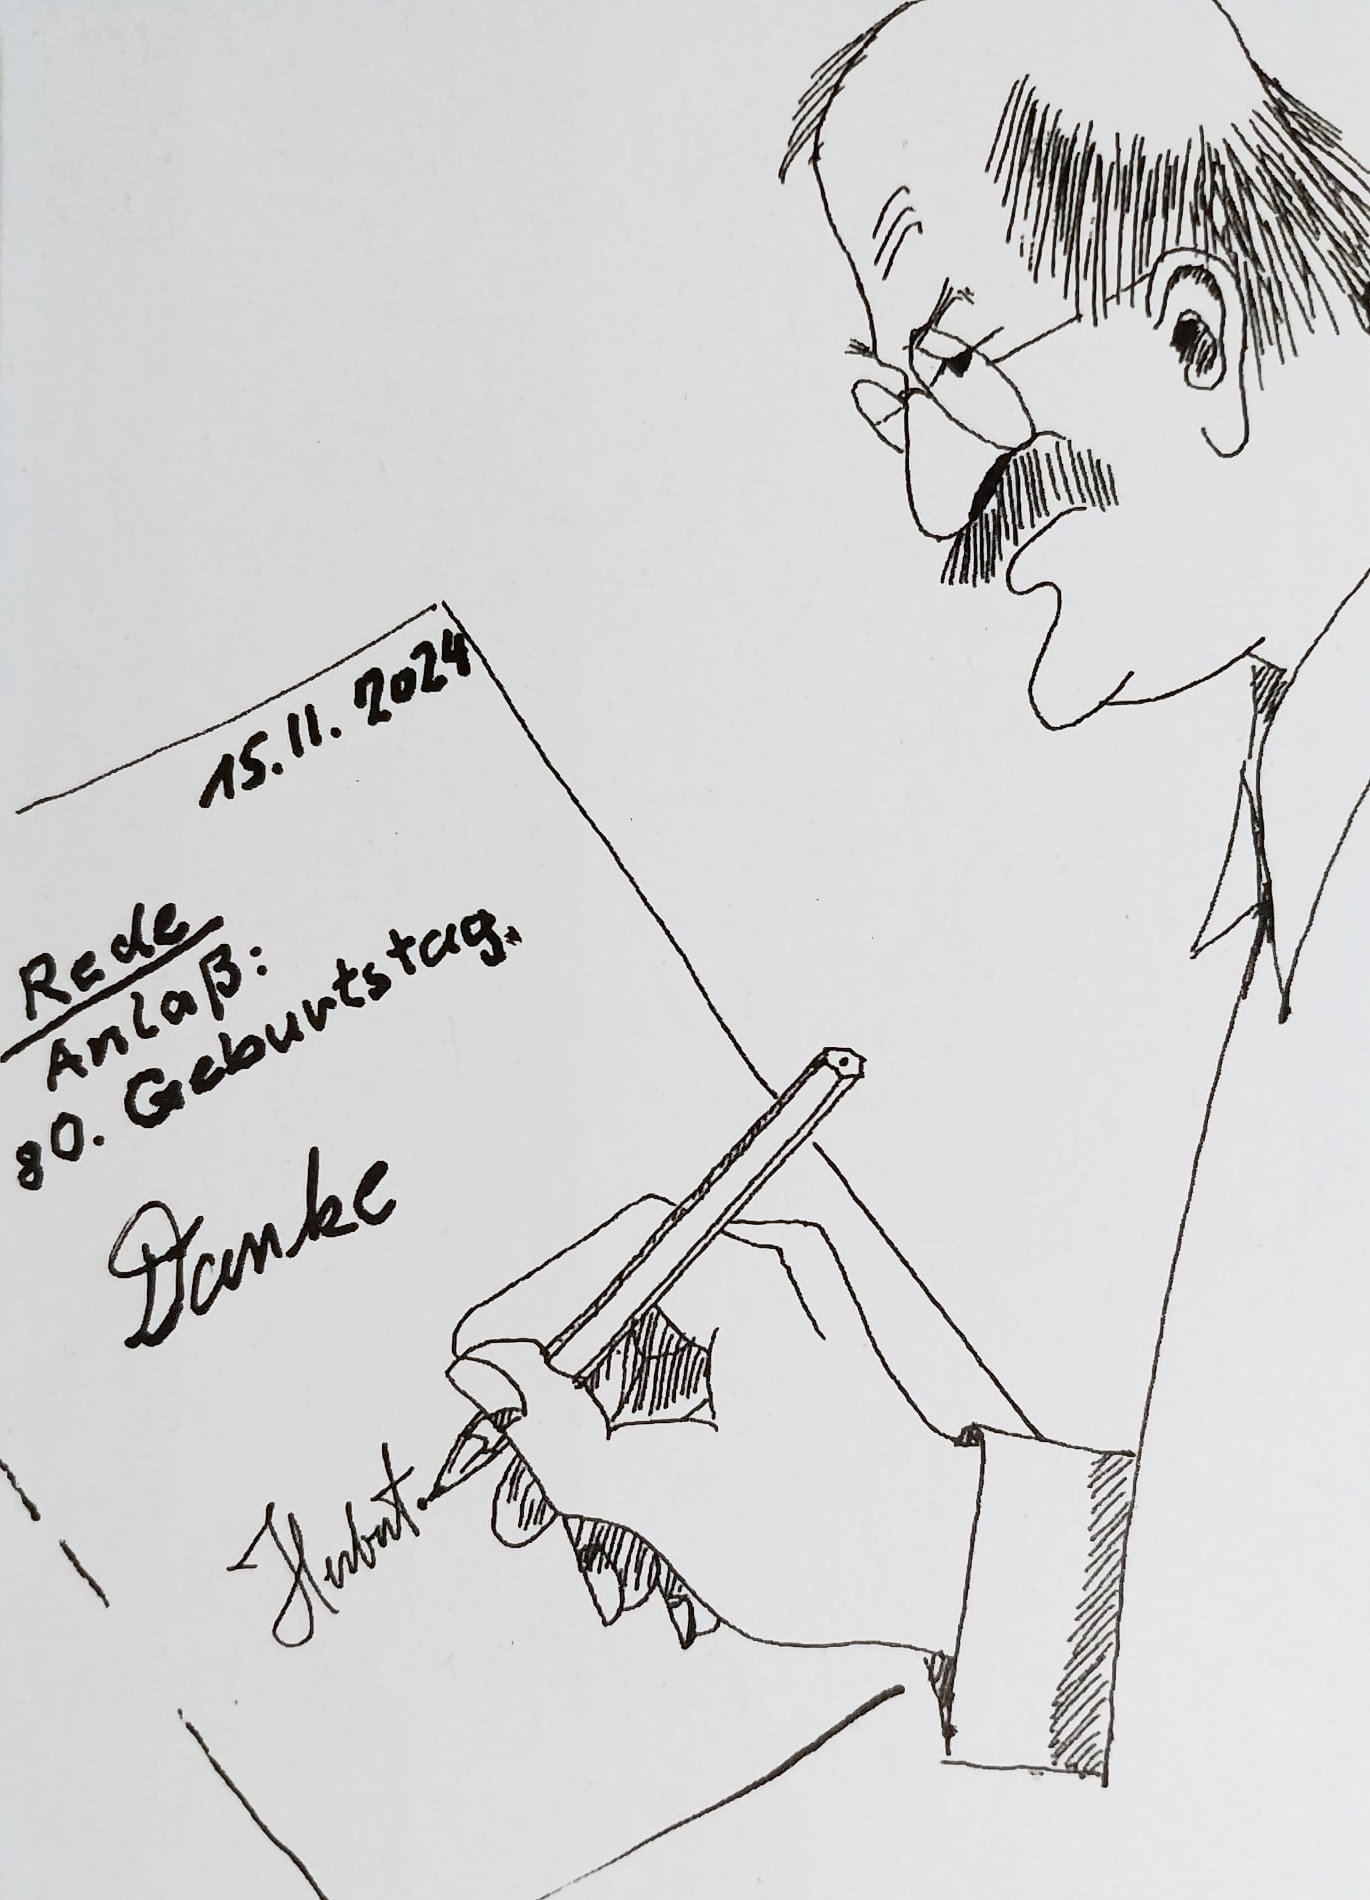 15.11.2024
Rede
Anlaß:
80. Geburtstag.
Danke
Herbert.